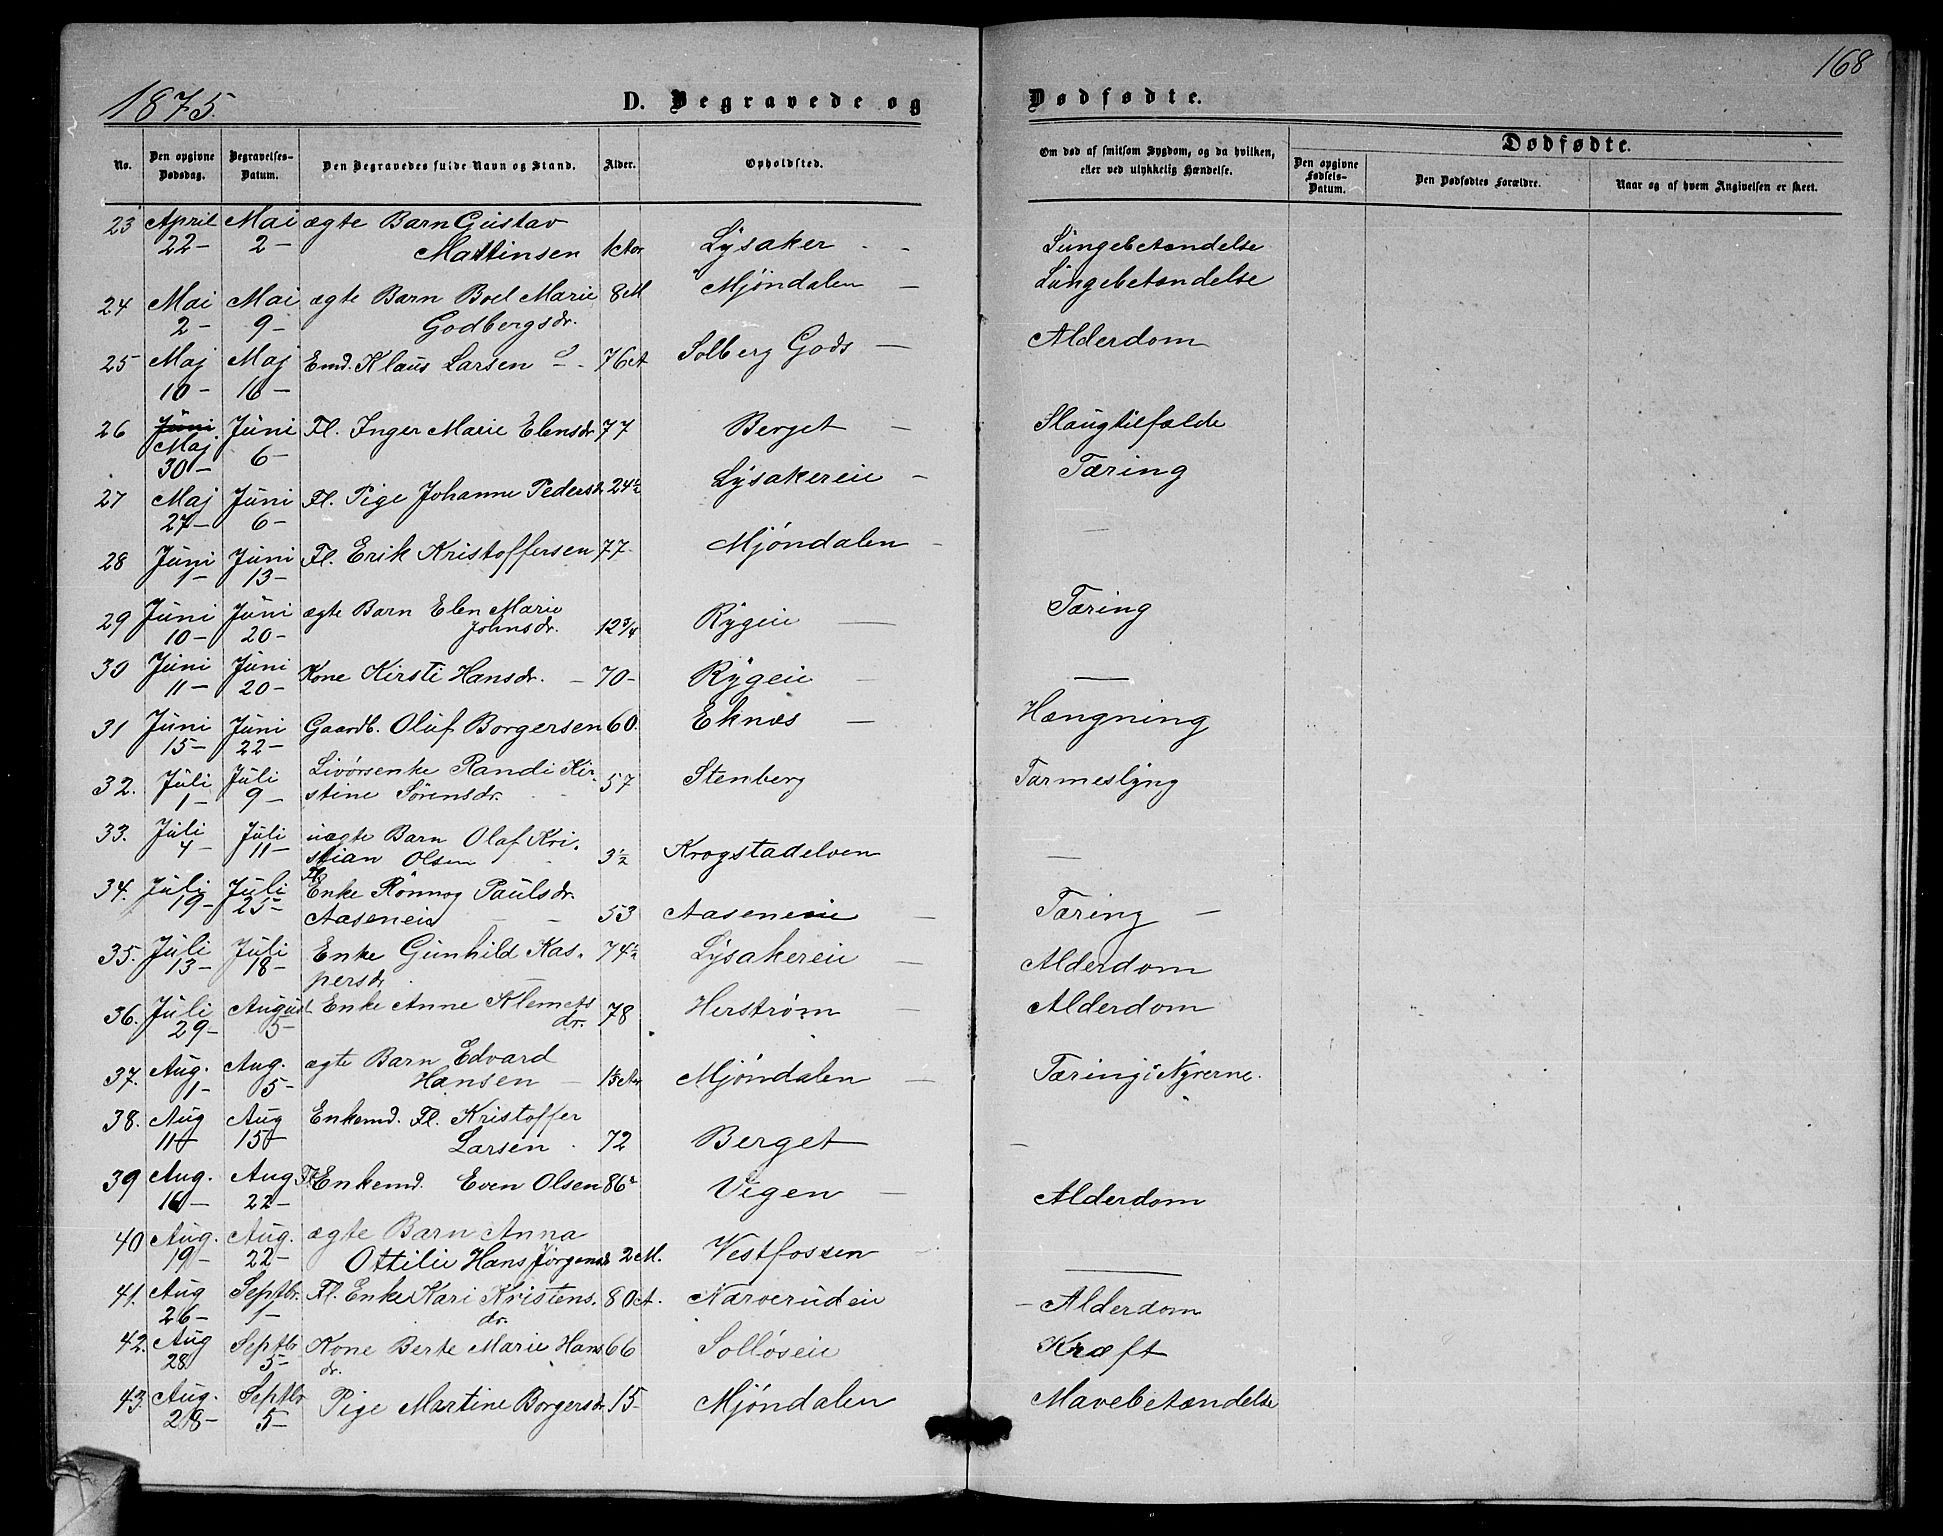 168
1875.
D. Begravede og
Dødfødte.
No.
Den opgivne Dødsdag.
Begravelses-Datum.
Den Begravedes fulde Navn og Stand.
Alder.
Opholdsted.
Om død af smitsom Sygdom, og da hvilken, eller ved ulykkelig Hændelse.
Dødfødte.
Den opgivne Fødsels-Datum.
Den Dødfødtes Forældre.
Naar og af hvem Angivelsen er skeet.
23 April 22- Mai 2- ægte Barn Gustav
Mattinsen Lysaker Lungebetændelse
24 Mai 2- Mai 9- ægte Barn Boel Marie 8M Mjöndalen Lungebetændelse
Godbergsdr.
25 Maj 10- Maj 16- Emd. Klaus Larsen 76A Solberg Gods Alderdom
26 Juni Maj 30- Juni 6- Fl. Inger Marie Elensdr 77 Berget Slaugtilfælde
27 Maj 27- Juni 6- Fl. Pige Johanne Pedersd 24½ Lysakereie Tæring
28 Juni 1- Juni 13- Fl. Erik Kristoffersen 77- Mjöndalen -
29 Juni 10- Juni 20- ægte Barn Elen Marie
Johnsdr. 12 3/4 Rygeie Tæring
30 Juni 11- Juni 20- Kone Kirsti Hansdr. 70- Rygeie -
31 Juni 15- Juni 22- Gaardb. Oluf Borgersen 60. Eknæs Hængning
32. Juli 1- Juli 9- Livörsenke Randi Kir-
stine Sörensdr. 57 Stenberg Tarmeslyng
33. Juli 4- Juli 11- uægte Barn Olaf Kri-
stian Olsen 3½ Krogstadelven -
34. Juli 19- Juli 25- Fl. Enke Rönnog Paulsdr.
Aaseneie 53 Aaseneie Tæring -
35. Juli 13- Juli 18- Enke Gunhild Kas- 74½ Lysakereie Alderdom
persdr
36. Juli 29- August 5- Enke Anne Klemets
dr. 78 Herström Alderdom
37. Aug. 1- Aug. 5- ægte Barn Edvard
Hansen Mjöndalen Tæring i Nyrerne.
38. Aug 11- Aug 15- Enkemd. Fl. Kristoffer
Larsen 72 Berget -
39 Aug. 16- Aug 22- Fl. Enkemd. Even Olsen 86½ Vegen Alderdom
40 Aug. 19- Aug. 22- ægte Barn Anna
Ottilie Hans Jörgensd 2M. Vestfossen -
41. Aug 26- Septbr. 1- Fl. Enke Kari Kristens. 80A. Narverudeie - Alderdom
dr.
42. Aug 28 Septbr 5- Kone Berte Marie Hans 66 Sollöseie Kræft
dr.
43. Aug. 28- Septbr 5- Pige Martine Borgersdr 15- Mjöndalen Mavebetændelse